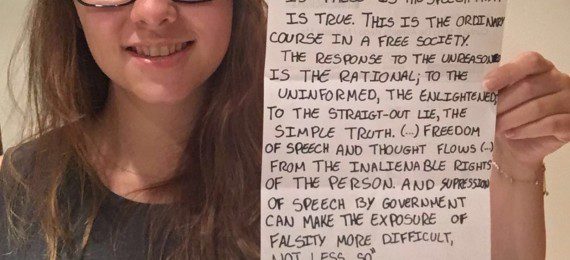 IS FALSE IS THE SPEECH THAT
IS TRUE. THIS IS THE ORDINARY
COURSE IN A FREE SOCIETY.
THE RESPONSE TO THE UNREASONED
IS THE RATIONAL; TO THE
UNINFORMED, THE ENLIGHTENED;
TO THE STRAIGT-OUT LIE, THE
SIMPLE TRUTH. (...) FREEDOM
OF SPEECH AND THOUGHT FLOWS (...)
FROM THE INALIENABLE RIGHTS
OF THE PERSON. AND SUPRESSION
OF SPEECH BY GOVERNMENT
CAN MAKE THE EXPOSURE OF
FALSITY MORE DIFFICULT,
NOT LESS SO"